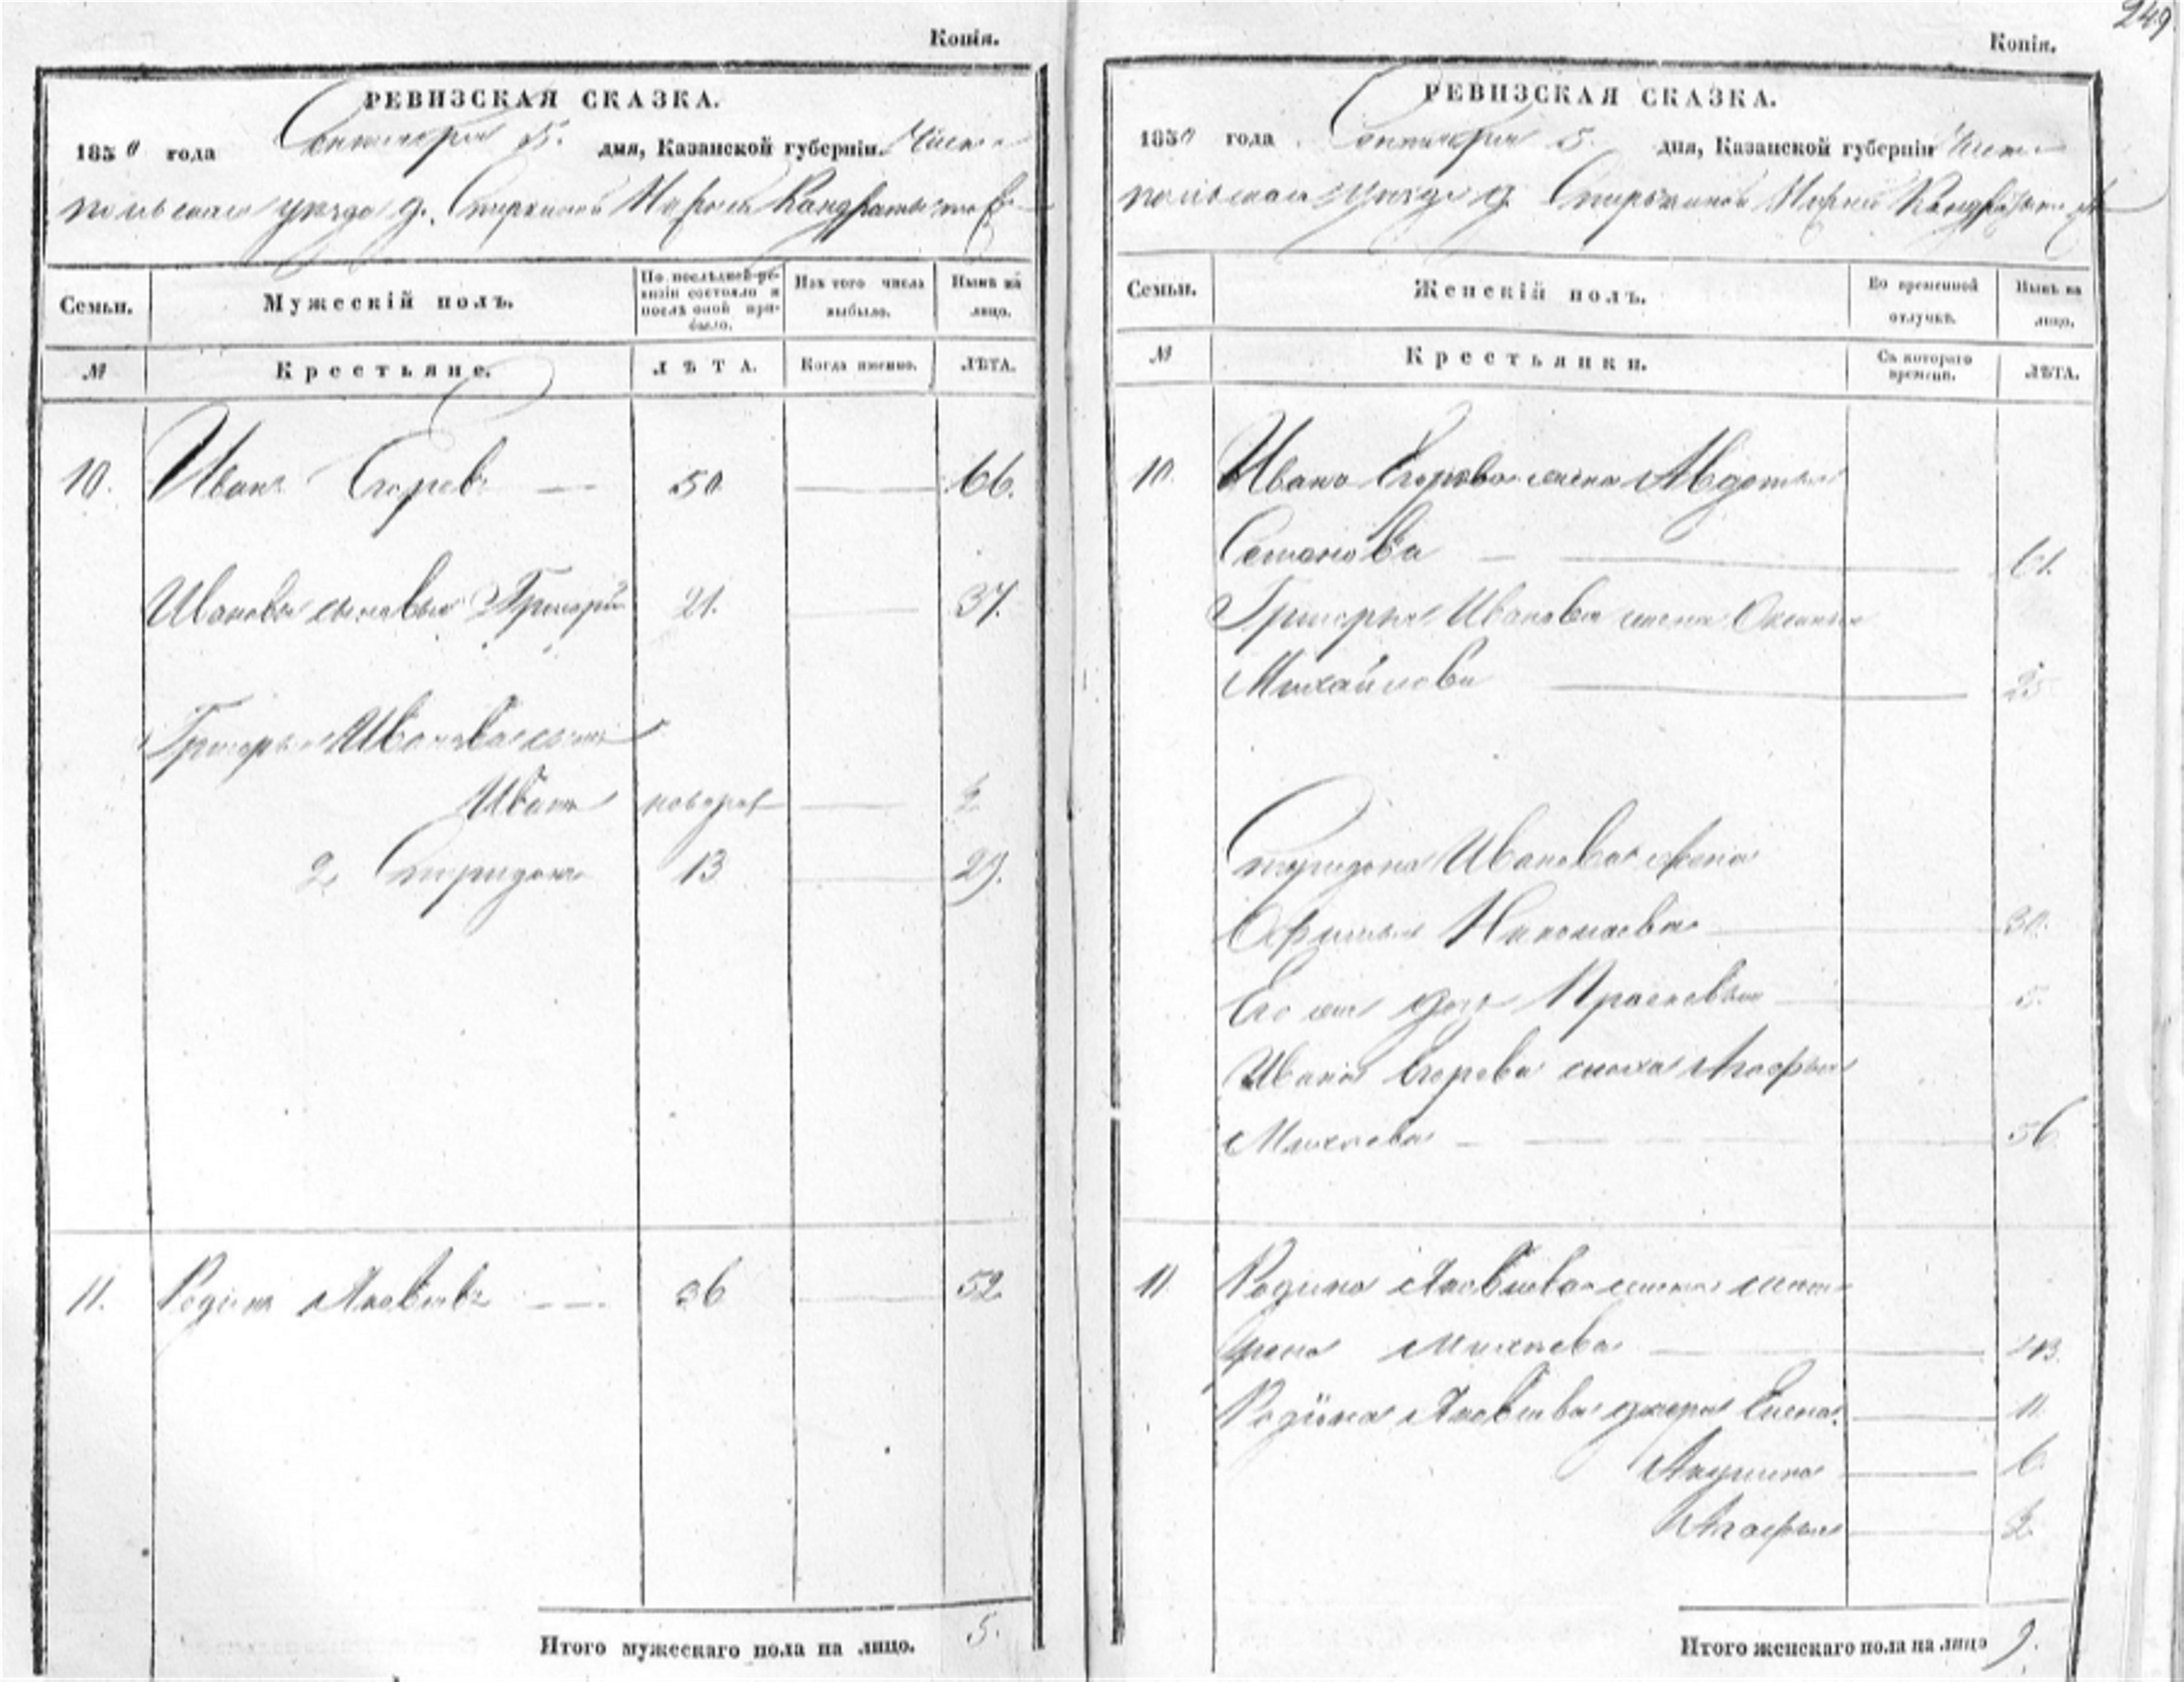 249
Копія.
РЕВИЗСКАЯ СКАЗКА.
1850 года Сентября 5. дня, Казанской губерніи Чисто
польскаго уѣзда д.
Семьи.
Мужескій полъ.
По послѣдней ре-
визіи состояло и
послѣ оной при-
было.
Изъ того числа
выбыло.
Нынѣ на
лицо.
№
Крестьяне.
ЛѢТА.
Когда именно.
ЛѢТА.
10. Иванъ Егоровъ — 50 — 66.
Ивановы сыновья 1 Григорій 21. — 37.
Григорья Иванова сынъ
Иванъ новорож — 2
2. Спиридонъ 13 — 29.
11. Родіонъ Яковлевъ — 36 — 52
Итого мужескаго пола на лицо. 5.
Копія.
РЕВИЗСКАЯ СКАЗКА.
1850 года Сентября 5. дня, Казанской губерніи Чисто
польскаго уѣзда д.
Семьи.
Женскій полъ.
Во временной
отлучкѣ.
Нынѣ на
лицо.
№
Крестьянки.
Съ котораго
времени.
ЛѢТА.
10. Ивана Егорова жена Авдотья
Семенова — 61.
Григорья Иванова жена Оксинья
Михайлова — 25
Спиридона Иванова жена
Офимья Николаева — 30.
Его же дочь Прасковья — 5.
Ивана Егорова сноха Агафья
Михеева — 56.
11 Родіона Яковлева жена
Ирена Михеева — 43.
Родіона Яковлева дочери Елена. — 11.
Акулина — 6.
Агафья — 2
Итого женскаго пола на лицо 9.